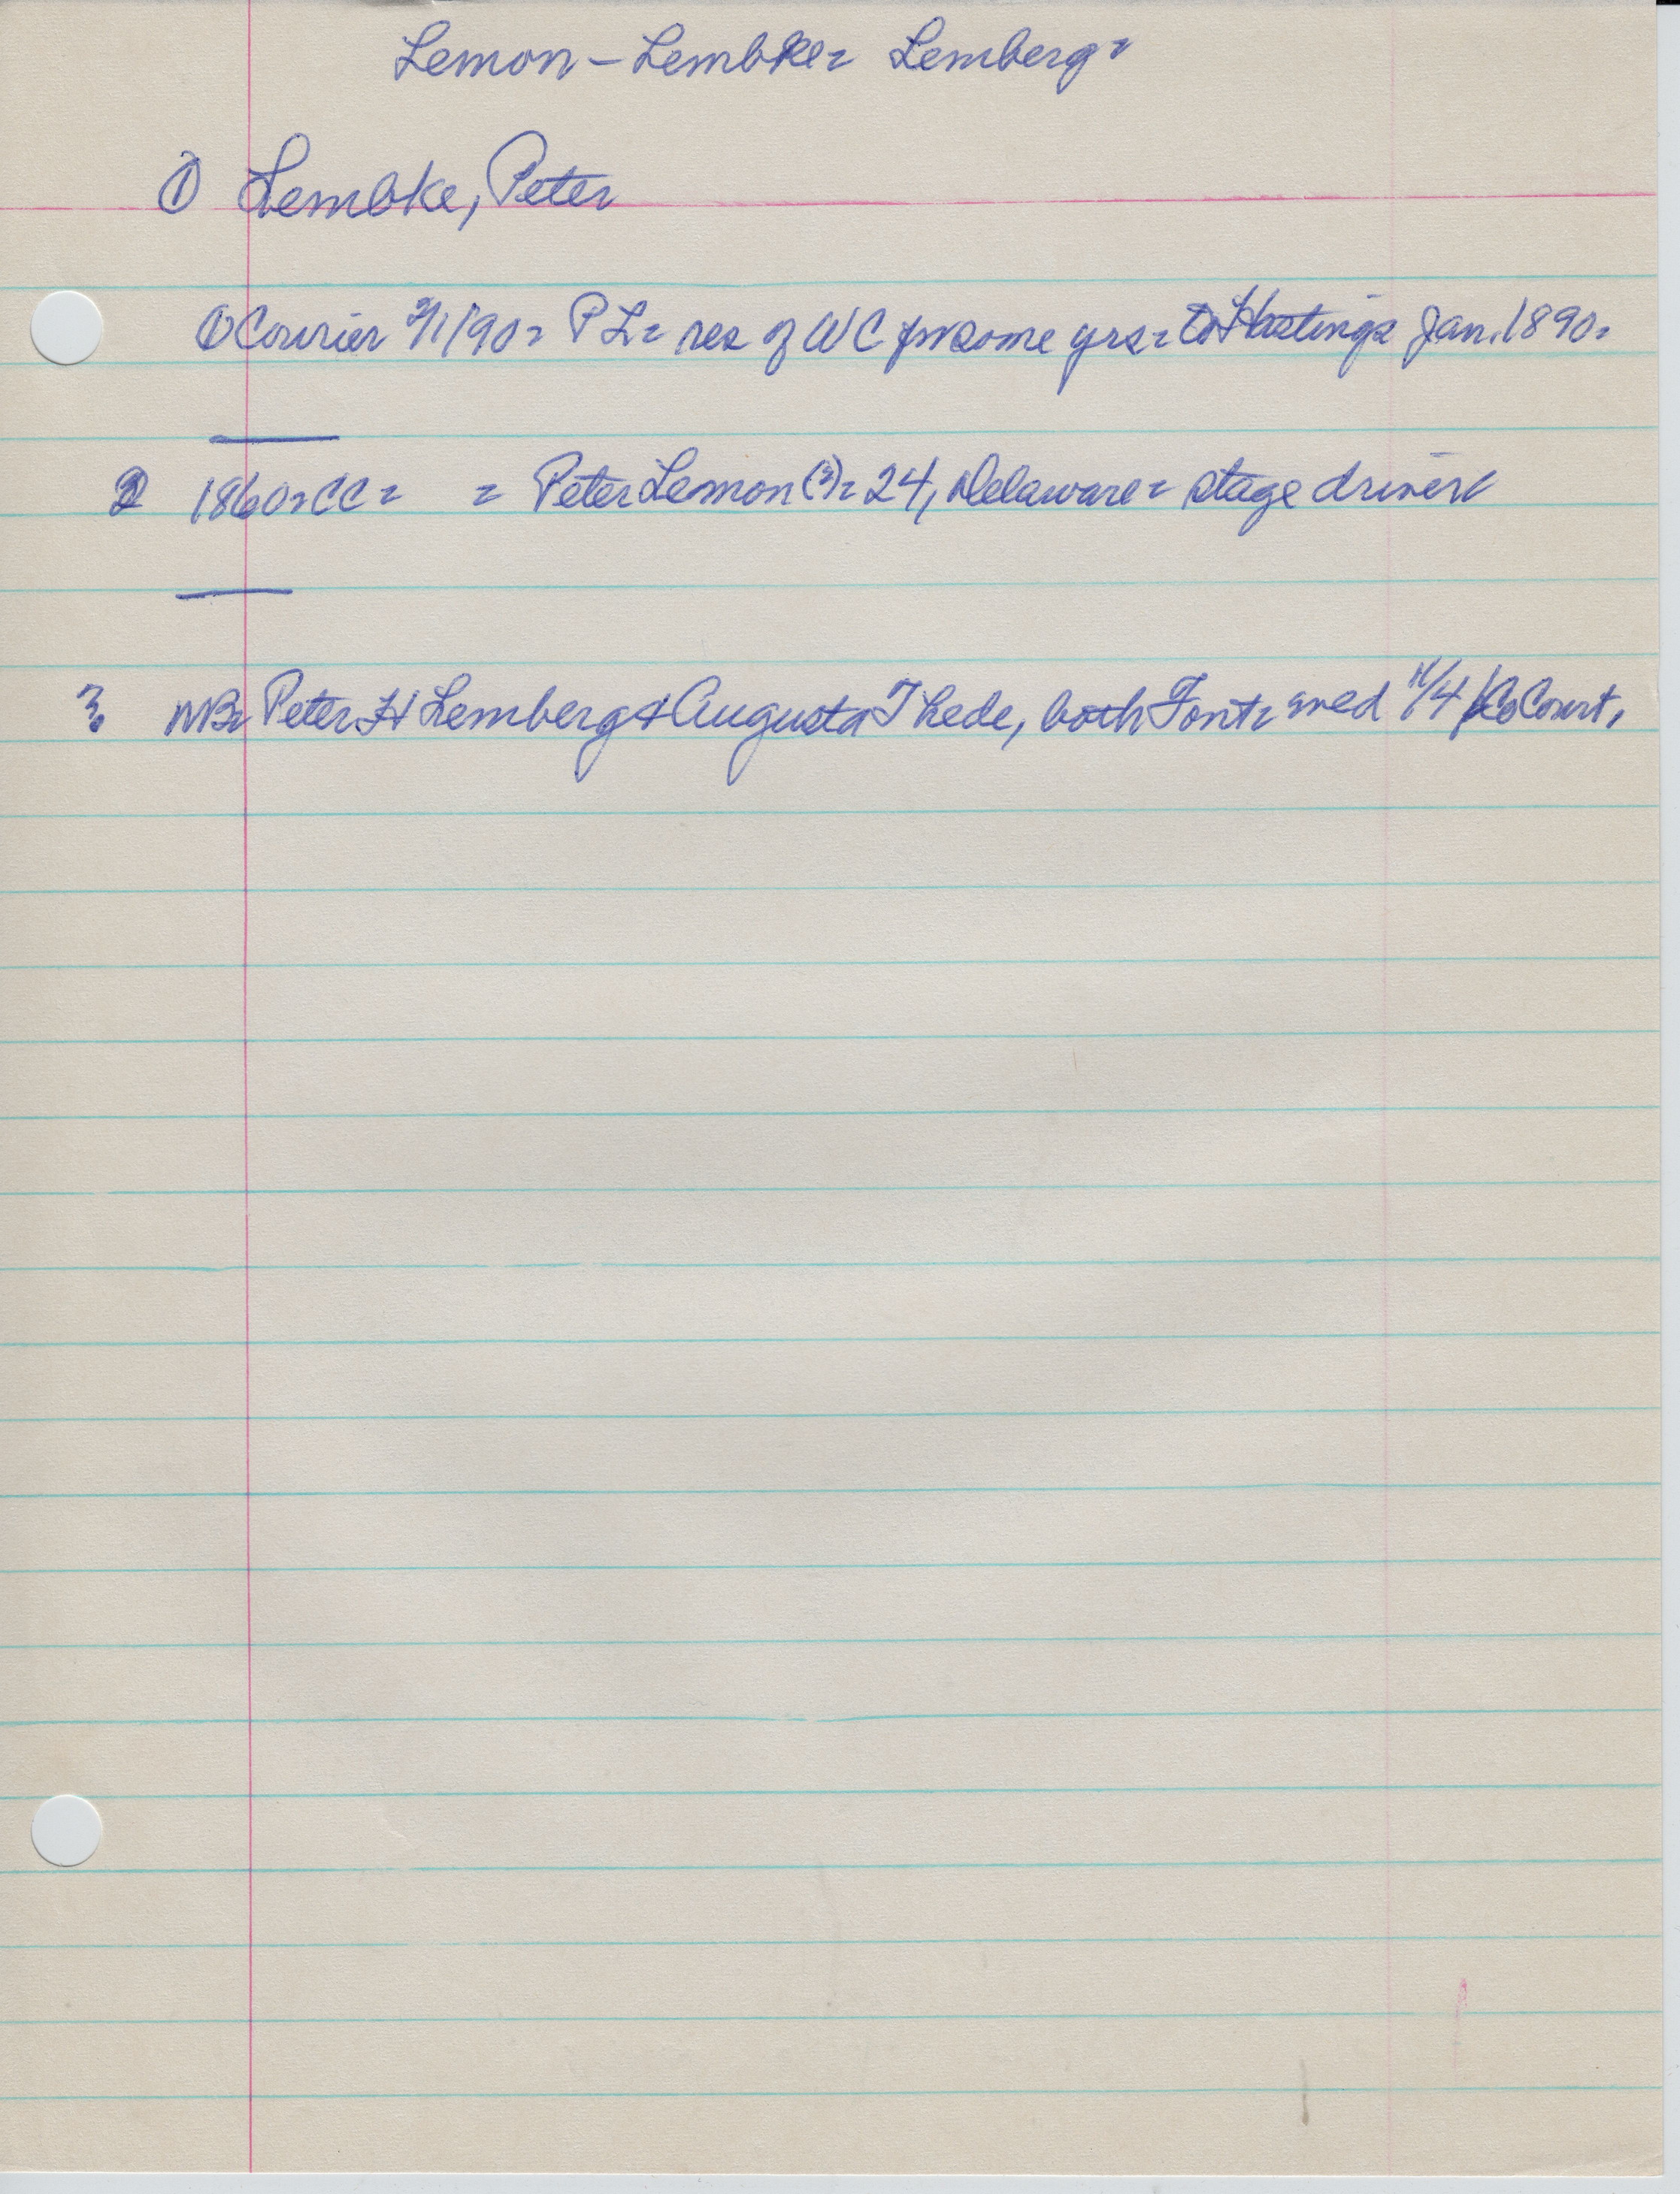 Lemon - Lembke = Lemberg =
① Lembke, Peter
① Courier 2/1/90 = P L = res of WC for some yrs = to Hastings Jan. 1890.
② 1860 = CC = = Peter Lemon (?) = 24, Delaware = stage driver
3 MB = Peter H Lemberg & Augusta Thede, both Font = med 11/4 Co Court.